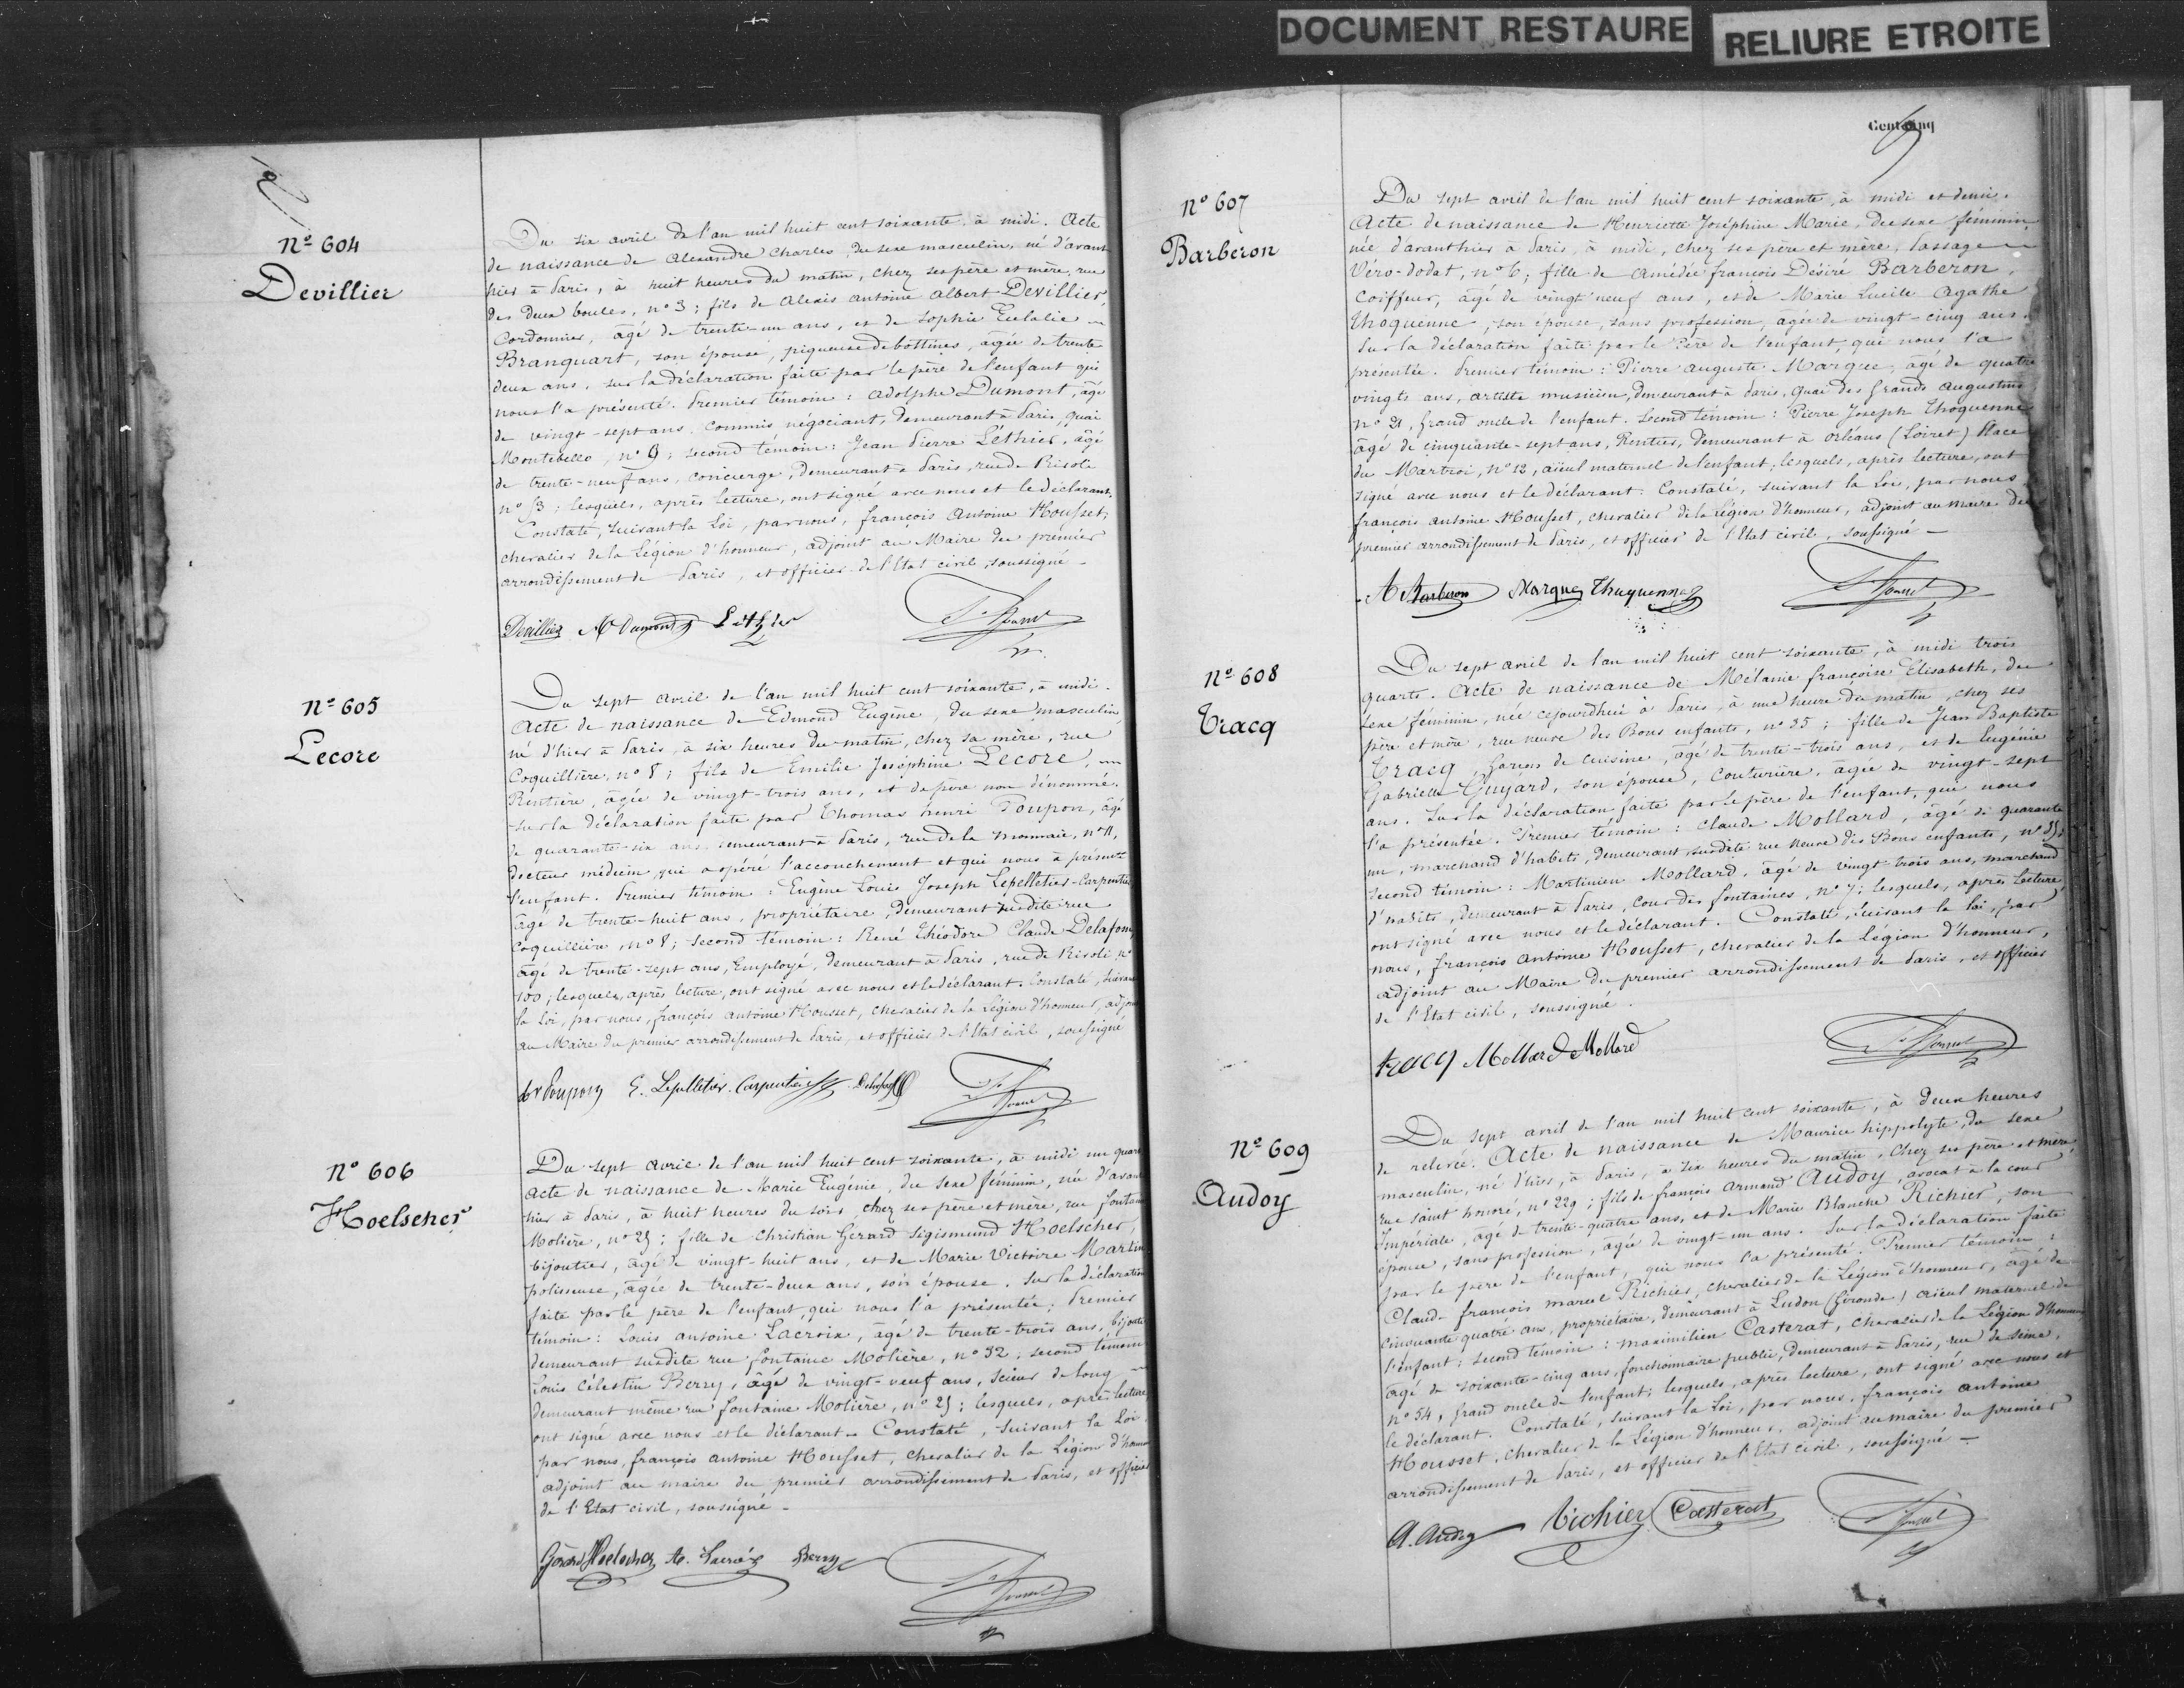 DOCUMENT RESTAURE
RELIURE ETROITE
Nº 604
Devillier
Du six avril de l'an mil huit cent soixante à midi. Acte
de naissance de Alexandre Charles, du sexe masculin, né d'avant
hier à Paris, à huit heures du matin, chez ses père et mère, rue
des deux boules, nº 3; fils de Alexis Antoine Albert Devillier,
Cordonnier, âgé de trente-un ans, et de Sophie Eulalie
Branquart, son épouse, piqueuse de bottines, âgée de trente
deux ans, sur la déclaration faite par le père de l'enfant qui
nous l'a présenté. Premier témoin: Adolphe Dumont, âgé
de vingt-sept ans, Commis négociant, demeurant à Paris, quai
Montebello, nº 9; second témoin: Jean Pierre Léthier, âgé
de trente-neuf ans, concierge, demeurant à Paris, rue de Rivoli
nº 13; lesquels, après lecture, ont signé avec nous et le déclarant.
Constaté, suivant la Loi, par nous, françois Antoine Housset,
chevalier de la Légion d'honneur, adjoint au Maire du premier
arrondissement de Paris, et officier de l'Etat civil, soussigné
Devillier Dumont Léthier
Nº 605
Lecore
Du sept avril de l'an mil huit cent soixante, à midi.
Acte de naissance de Edmond Eugène, du sexe masculin,
né d'hier à Paris, à six heures du matin, chez sa mère, rue
Coquillière, nº 8; fils de Emilie Joséphine Lecore,
Rentière, âgée de vingt-trois ans, et de père non dénommé.
sur la déclaration faite par Thomas henri Poupon, âgé
de quarante-six ans demeurant à Paris, rue de la Monnaie, nº 11,
docteur médecin, qui a opéré l'accouchement et qui nous a présenté
l'enfant. Premier témoin: Eugène Louis Joseph Lepelletier-Carpentier
âgé de trente-huit ans, propriétaire, demeurant susdite rue
Coquillière, nº 8; second témoin: René Théodore Claude Delafon
âgé de trente-sept ans, Employé, demeurant à Paris, rue de Rivoli, nº
100; lesquels, après lecture, ont signé avec nous et le déclarant. Constaté, suivant
la Loi, par nous, françois Antoine Housset, chevalier de la Légion d'honneur, adjoint
au Maire du premier arrondissement de Paris, et officier de l'Etat civil, soussigné
dr Poupon E. Lepelletier-Carpentier
Nº 606
Hoelscher
Du sept avril de l'an mil huit cent soixante, à midi un quart
Acte de naissance de Marie Eugénie, du sexe féminin, née d'avant
hier à Paris, à huit heures du soir, chez ses père et mère, rue fontaine
Molière, nº 25; fille de Christian Gérard Sigismund Hoelscher,
bijoutier, âgé de vingt-huit ans, et de Marie Victoire Martin
polisseuse, âgée de trente-deux ans, son épouse. Sur la déclaration
faite par le père de l'enfant qui nous l'a présentée; Premier
témoin: Louis antoine Lacroix, âgé de trente-trois ans, bijoutier
demeurant susdite rue fontaine Molière, nº 32; second témoin
Louis Célestin Berry, âgé de vingt-neuf ans, Scieur de long
demeurant même rue fontaine Molière, nº 25; lesquels, après lecture
ont signé avec nous et le déclarant. Constaté, suivant la Loi
par nous, françois antoine Housset, chevalier de la Légion d'honneur
adjoint au maire du premier arrondissement de Paris, et officier
de l'Etat civil, soussigné
Gérard Hoelscher Lacroix Berry
Cent cinq
Nº 607
Barberon
Du sept avril de l'an mil huit cent soixante, à midi et demi.
Acte de naissance de Henriette Joséphine Marie, du sexe féminin,
née d'avanthier à Paris, à midi, chez ses père et mère, Passage
Véro-dodat, nº 6; fille de Amédée françois Désiré Barberon,
Coiffeur, âgé de vingt neuf ans, et de Marie Lucile Agathe
Thoquenne, son épouse, sans profession, âgée de vingt-cinq ans.
Sur la déclaration faite par le Père de l'enfant, qui nous l'a
présentée. Premier témoin: Pierre Auguste Marque, âgé de quatre
vingts ans, artiste musicien, demeurant à Paris, Quai des Grands Augustins
nº 21, Grand oncle de l'enfant. Second témoin: Pierre Joseph Thoquenne
âgé de cinquante-sept ans, Rentier, demeurant à orléans (Loiret) Place
du Martroi, nº 12, aïeul maternel de l'enfant; lesquels, après lecture, ont
signé avec nous et le déclarant. Constaté, suivant la Loi, par nous
françois antoine Housset, chevalier de la Légion d'honneur, adjoint au maire du
premier arrondissement de Paris, et officier de l'Etat civil, soussigné
A Barberon Marque Thoquenne
Nº 608
Tracq
Du sept avril de l'an mil huit cent soixante, à midi trois
quarts. Acte de naissance de Mélanie françoise Elisabeth, du
sexe féminin, née cejourdhui à Paris, à une heure du matin, chez ses
père et mère, rue neuve des Bons enfants, nº 35; fille de Jean Baptiste
Tracq, Garçon de Cuisine, âgé de trente-trois ans, et de Eugénie
Gabrielle Guyard, son épouse, Couturière, âgée de vingt-sept
ans. Sur la déclaration faite par le père de l'enfant, qui nous
l'a présentée. Premier témoin: Claude Mollard, âgé de quarante
un, marchand d'habits, demeurant susdite rue neuve des Bons enfants, nº 35;
second témoin: Martinien Mollard, âgé de vingt trois ans, marchand
d'habits, demeurant à Paris, cour des fontaines, nº 7; lesquels, après lecture,
ont signé avec nous et le déclarant. Constaté, suivant la loi, par
nous, françois antoine Housset, chevalier de la Légion d'honneur,
adjoint au Maire du premier arrondissement de Paris, et officier
de l'Etat civil, soussigné.
tracq Mollard Mollard
Nº 609
Audoy
Du sept avril de l'an mil huit cent soixante, à deux heures
de relevée. Acte de naissance de Maurice hippolyte, du sexe
masculin, né d'hier, à Paris, à six heures du matin, chez ses père et mère
rue saint honoré, nº 229; fils de françois Armand Audoy, avocat à la cour
Impériale, âgé de trente-quatre ans, et de Marie Blanche Richier, son
épouse, sans profession, âgée de vingt-un ans. Sur la déclaration faite
par le père de l'enfant, qui nous l'a présenté. Premier témoin:
Claude françois marcel Richier, chevalier de la Légion d'honneur, âgé de
Cinquante quatre ans, propriétaire, demeurant à Ludon (Gironde) aïeul maternel de
l'enfant; second témoin: maximilien Casterat, chevalier de la Légion d'honneur
âgé de soixante-cinq ans, fonctionnaire public, demeurant à Paris, rue de seine,
nº 54, grand oncle de l'enfant; lesquels, après lecture, ont signé avec nous et
le déclarant. Constaté, suivant la Loi, par nous, françois antoine
Housset, chevalier de la Légion d'honneur, adjoint au maire du premier
arrondissement de Paris, et officier de l'Etat civil, soussigné
A. Audoy Richier Casterat